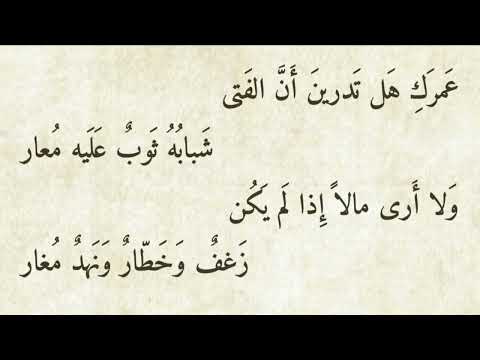 عَمرَكِ هَل تَدرينَ أَنَّ الفَتى
شَبابُهُ ثَوبٌ عَلَيه مُعار
وَلا أَرى مالاً إِذا لَم يَكُن
زَغفٌ وَخَطّارٌ وَنَهدٌ مُغار